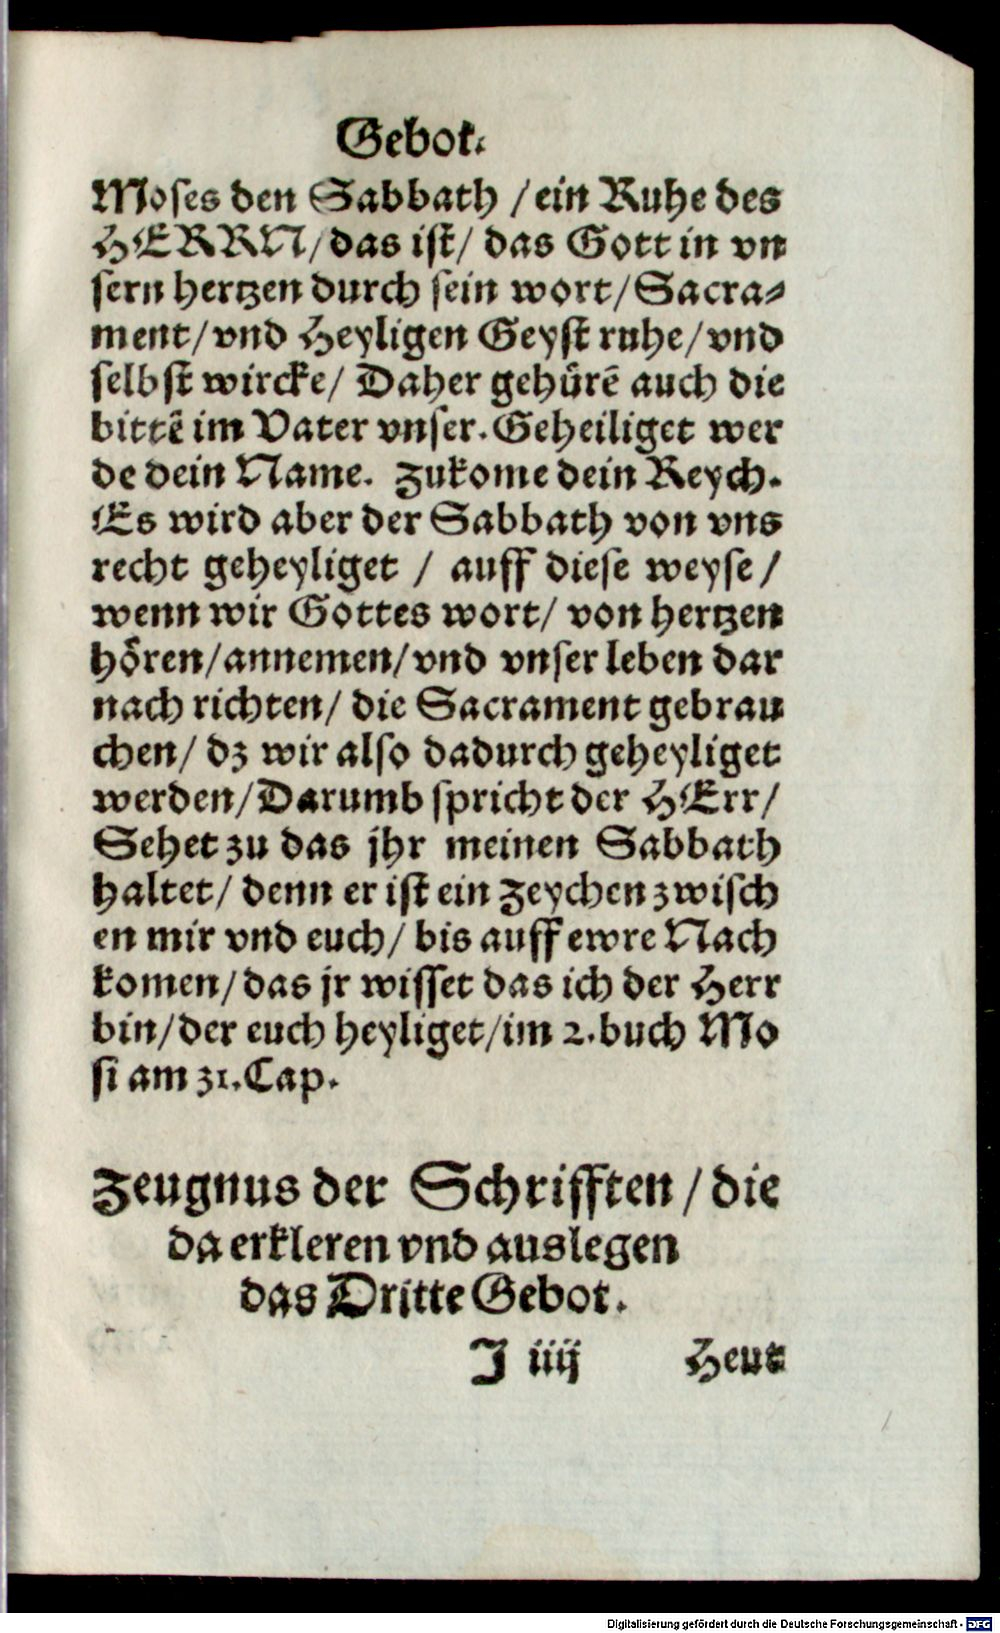 Gebot.
Moses den Sabbath / ein Ruhe des
HERRN/das ist/ das Gott in vn
sern hertzen durch sein wort/Sacra⸗
ment/vnd Heyligen Geyst ruhe/vnd
selbst wircke/ Daher gehürẽ auch die
bittẽ im Vater vnser. Geheiliget wer
de dein Name. Zukome dein Reych.
Es wird aber der Sabbath von vns
recht geheyliget / auff diese weyse/
wenn wir Gottes wort/ von hertzen
hören/annemen/vnd vnser leben dar
nach richten/ die Sacrament gebrau
chen/ dz wir also dadurch geheyliget
werden/Darumb spricht der HErr/
Sehet zu das jhr meinen Sabbath
haltet/ denn er ist ein Zeychen zwisch
en mir vnd euch/ bis auff ewre Nach
komen/das jr wisset das ich der Herr
bin/der euch heyliget/im 2.buch Mo
si am 31.Cap.
Zeugnus der Schrifften/die
da erkleren vnd auslegen
das Dritte Gebot.
J iiij Heut
Digitalisierung gefördert durch die Deutsche Forschungsgemeinschaft - DFG